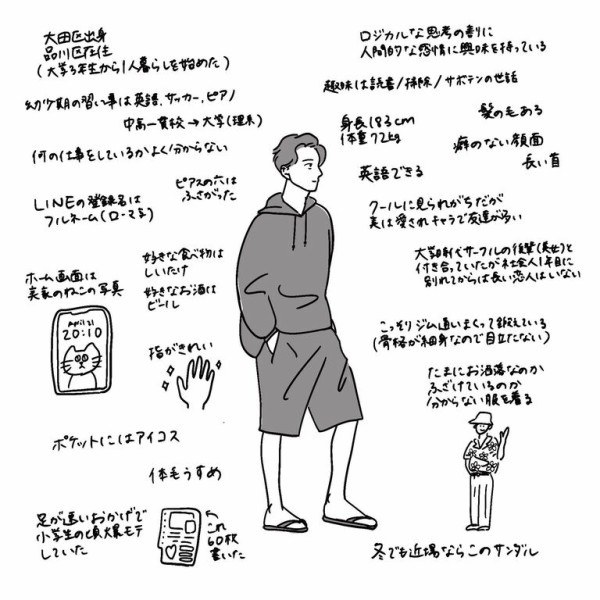 大田区出身
品川区在住
(大学3年生から1人暮らしを始めた)
幼少期の習い事は英語、サッカー、ピアノ
中高一貫校→大学(理系)
何の仕事をしているかよく分からない
ピアスの穴は
ふさがった
LINEの登録名は
フルネーム(ローマ字)
ホーム画面は
実家のねこの写真
April 21
20:10
好きな食べ物は
しいたけ
好きなお酒は
ビール
指がきれい
ポケットにはアイコス
体毛うすめ
足が速いおかげで
小学生の頃大爆モテ
していた
これ
60枚
書いた
ロジカルな思考の割に
人間的な感情に興味を持っている
趣味は読書/掃除/サボテンの世話
身長183cm
体重72kg
髪の毛ある
癖のない顔面
長い首
英語できる
クールに見られがちだが
実は愛されキャラで友達が多い
大学時代サークルの後輩(美女)と
付き合っていたが社会人1年目に
別れてからは長い恋人はいない
こっそりジム通いまくって鍛えている
(骨格が細身なので目立たない)
たまにお洒落なのか
ふざけているのか
分からない服を着る
冬でも近場ならこのサンダル